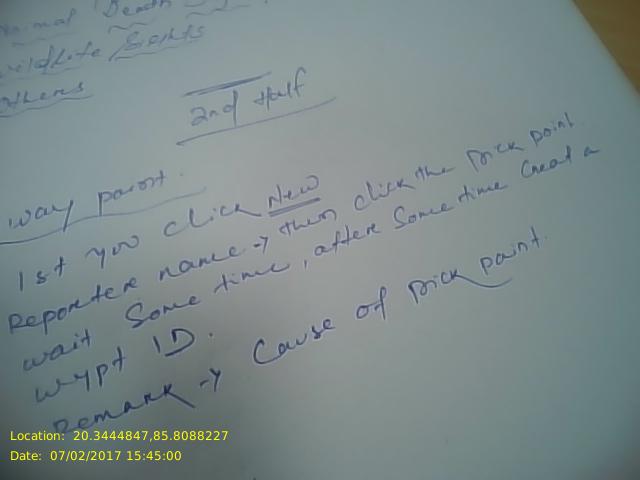 Animal Death
Wildlife Sights
Others
2nd Half
Way point.
1st you click New
Reporter name → then click the Pick point
wait Some time, after Some time Creat a
Wypt ID.
Remark → Cause of Pick point.
Location: 20.3444847,85.8088227
Date: 07/02/2017 15:45:00